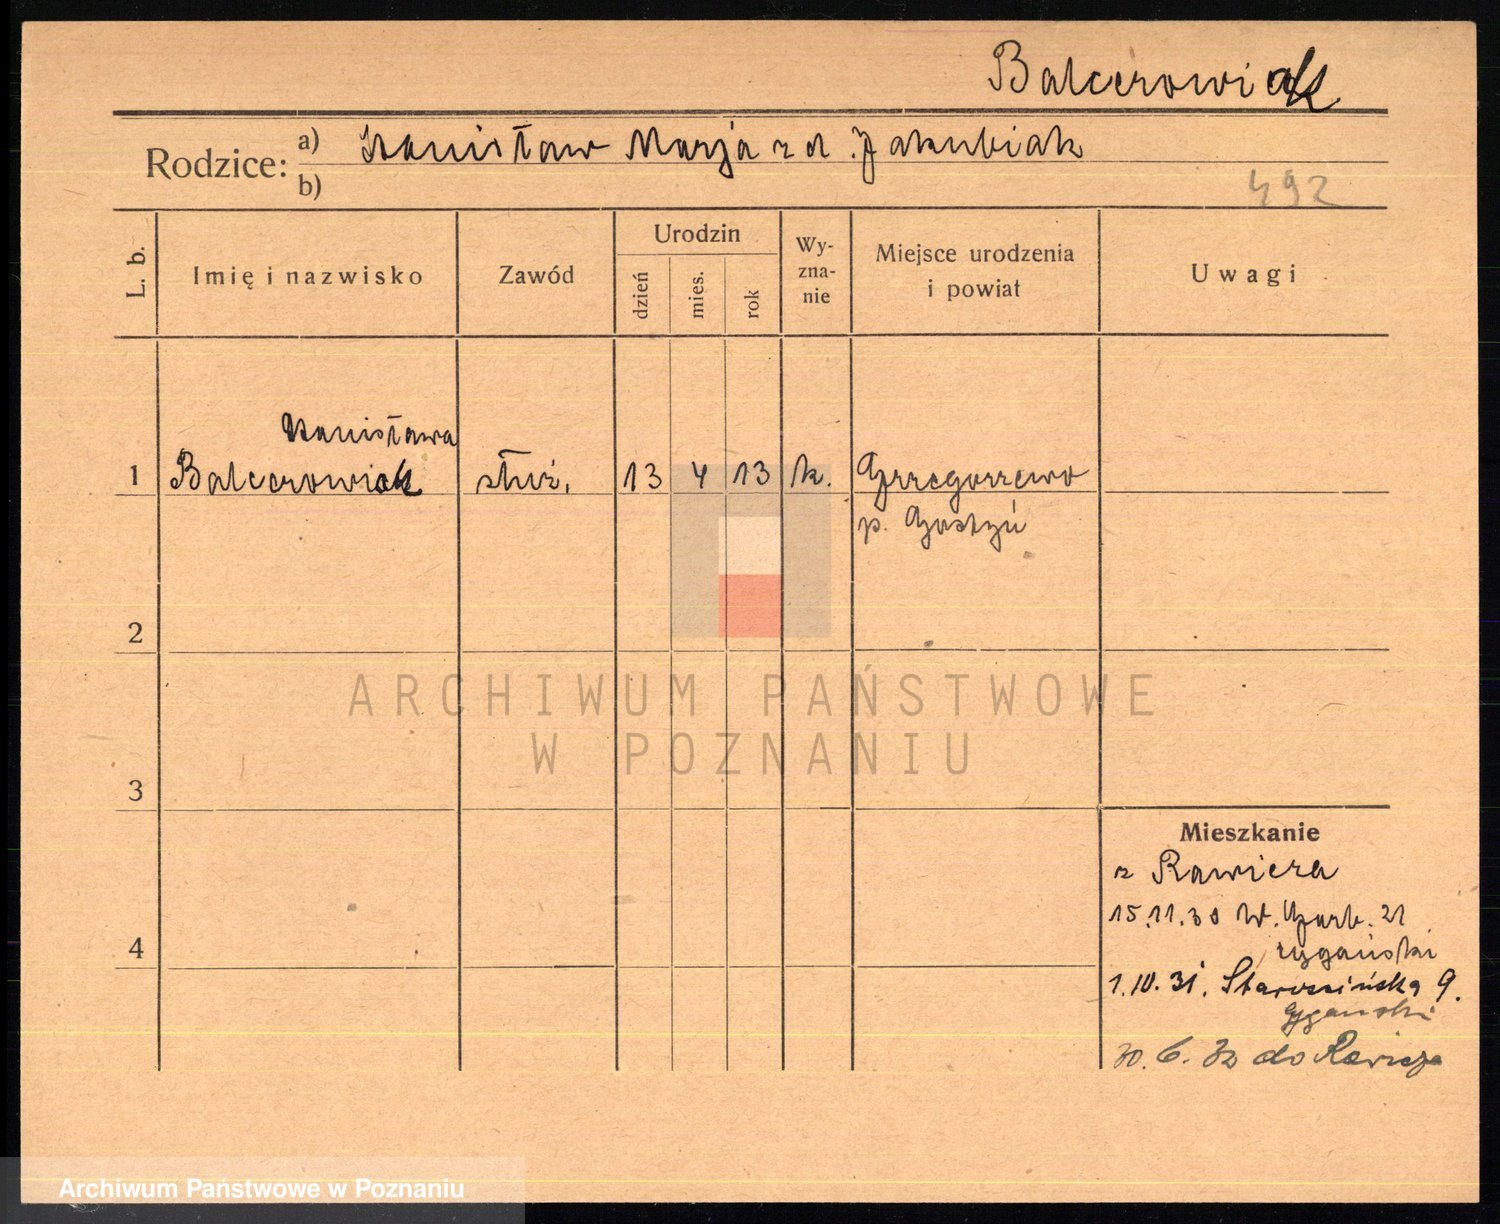 Balcerowiak
Rodzice: a) Stanisław Marja z d. Jakubiak
b)
492
L. b. Imię i nazwisko Zawód Urodzin dzień mies. rok Wy-zna-nie Miejsce urodzenia i powiat Uwagi
Stanisława
1 Balcerowiak służ. 13 4 13 k. Grzegorzewo
p. Gostyń
2
ARCHIWUM PAŃSTWOWE
W POZNANIU
3
Mieszkanie
z Rawicza
15.11.30 W. Garb. 21
4
1.10.31. Starościńska 9.
30.6.32 do Rawicza
Archiwum Państwowe w Poznaniu